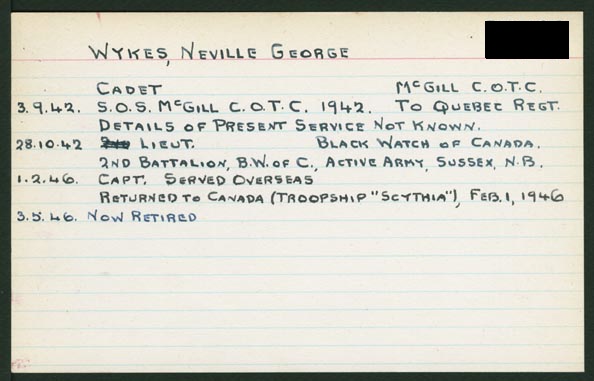 WYKES, NEVILLE GEORGE
CADET McGILL C.O.T.C.
3.9.42. S.O.S. McGILL C.O.T.C. 1942. TO QUEBEC REGT.
DETAILS OF PRESENT SERVICE NOT KNOWN.
28.10.42 LIEUT. BLACK WATCH OF CANADA.
2ND BATTALION, B.W. OF C., ACTIVE ARMY, SUSSEX, N.B.
1.2.46. CAPT. SERVED OVERSEAS
RETURNED TO CANADA (TROOPSHIP "SCYTHIA"), FEB. 1, 1946
3.5.46. NOW RETIRED